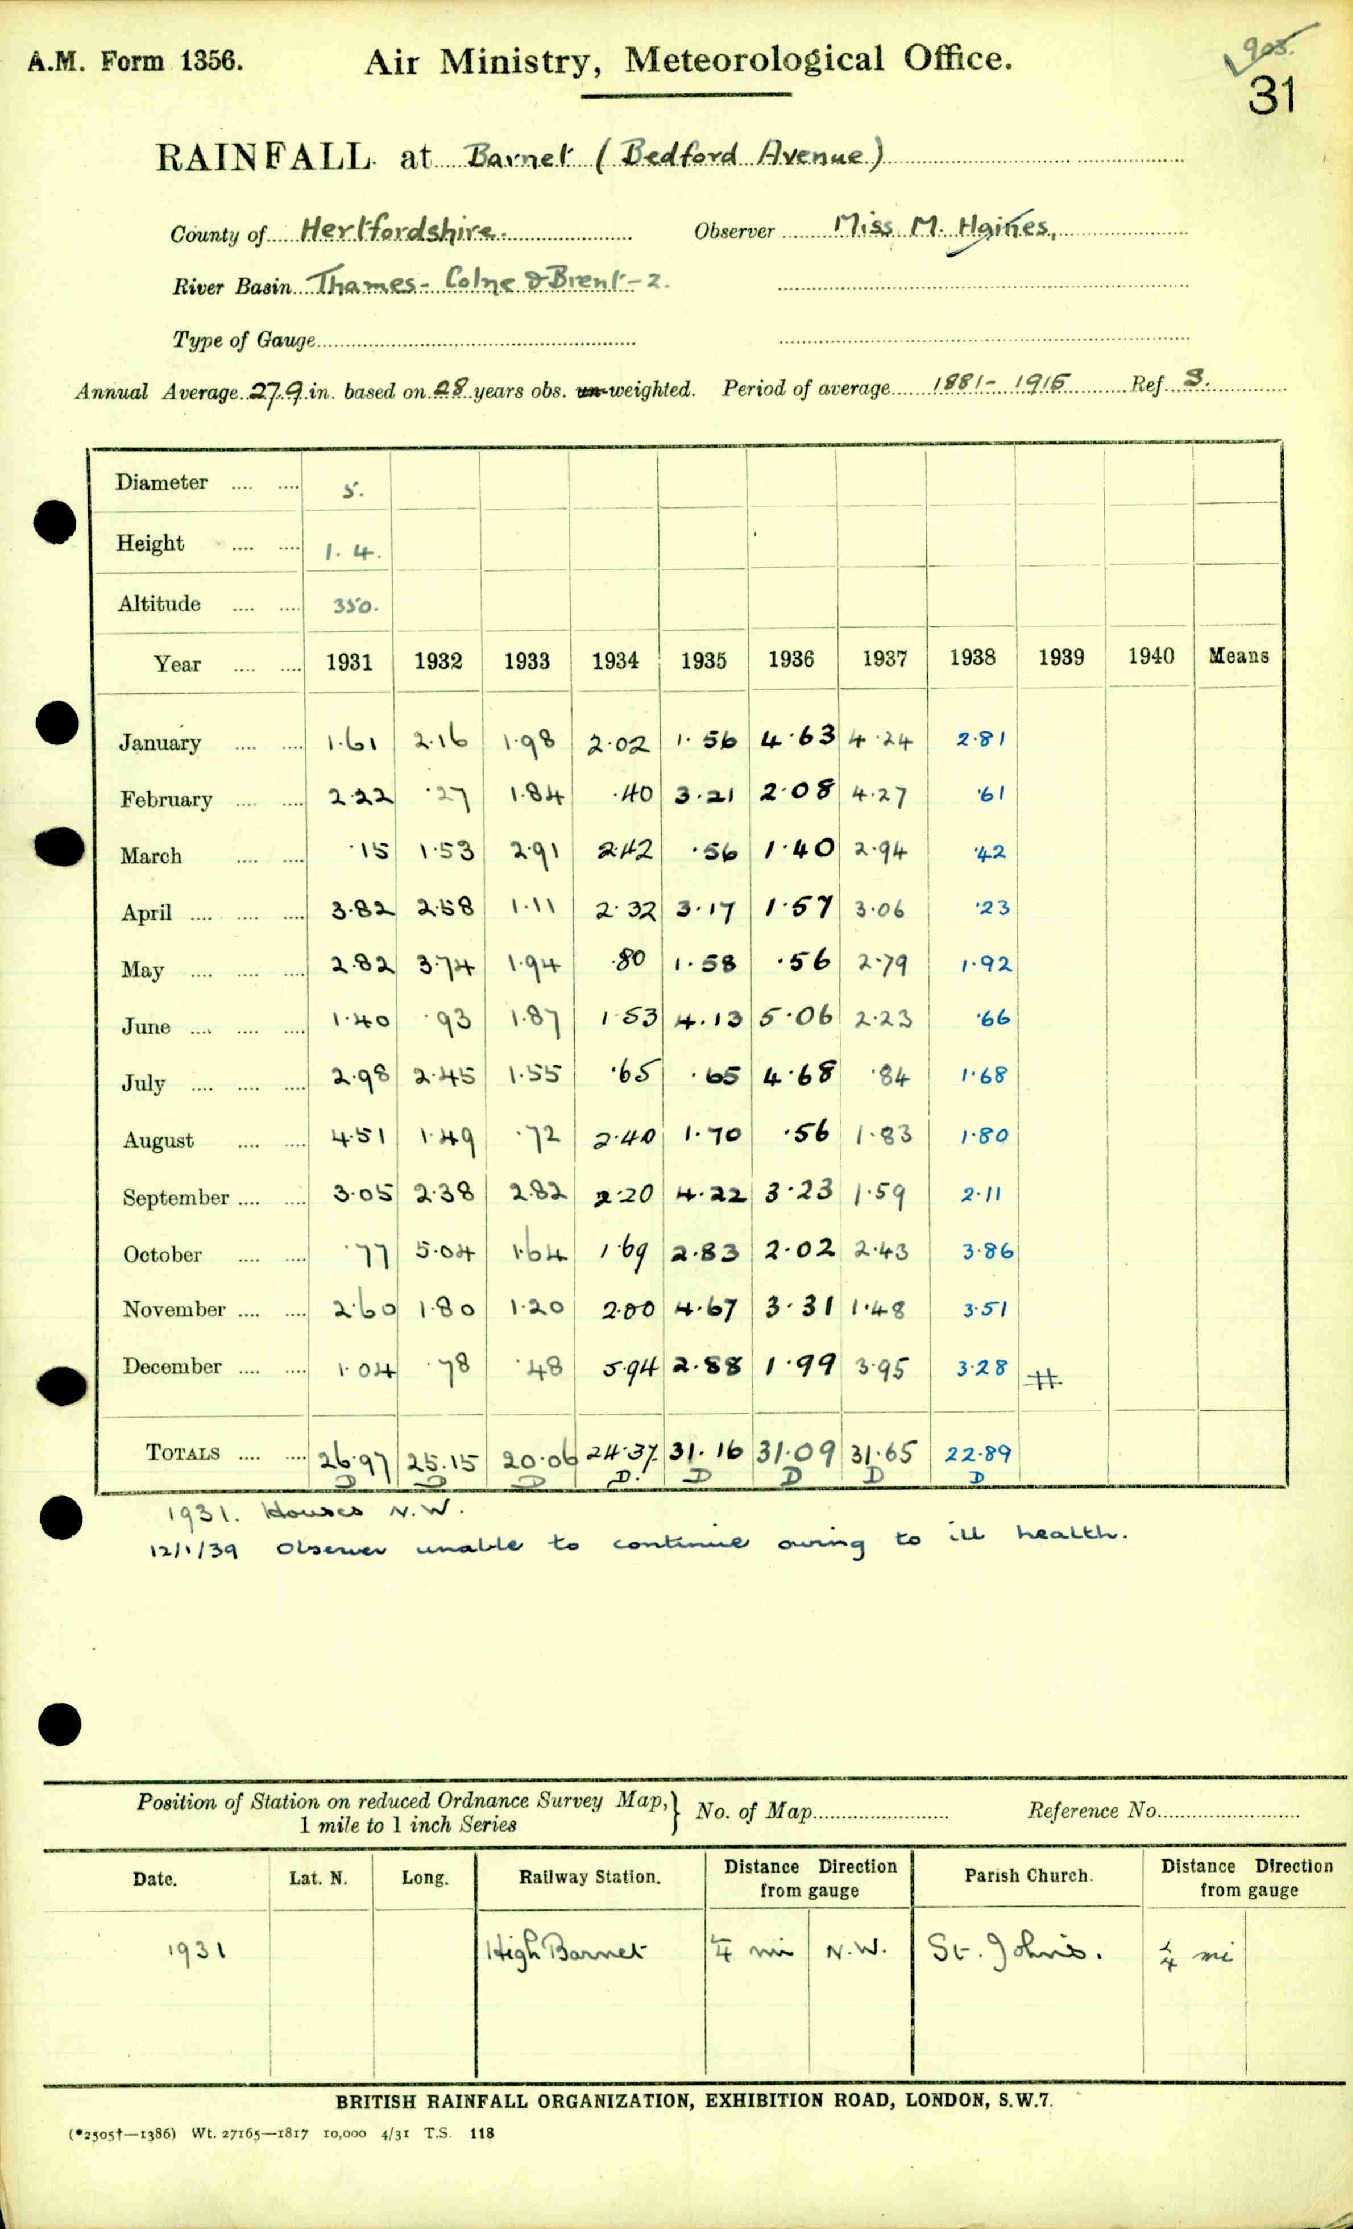 A.M. Form 1356.
Air Ministry, Meteorological Office.
905.
31
RAINFALL at Barnet (Bedford Avenue)
County of Hertfordshire. Observer Miss M. Haines,
River Basin Thames - Colne & Brent - 2.
Type of Gauge
Annual Average 27.9 in. based on 28 years obs. un-weighted. Period of average 1881 - 1915 Ref. S.
Diameter 5.
Height 1. 4.
Altitude 350.
Year 1931 1932 1933 1934 1935 1936 1937 1938 1939 1940 Means
January 1.61 2.16 1.98 2.02 1.56 4.63 4.24 2.81
February 2.22 .27 1.84 .40 3.21 2.08 4.27 .61
March .15 1.53 2.91 2.42 .56 1.40 2.94 .42
April 3.82 2.58 1.11 2.32 3.17 1.57 3.06 .23
May 2.82 3.74 1.94 .80 1.58 .56 2.79 1.92
June 1.40 .93 1.87 1.53 4.13 5.06 2.23 .66
July 2.98 2.45 1.55 .65 .65 4.68 .84 1.68
August 4.51 1.49 .72 2.40 1.70 .56 1.83 1.80
September 3.05 2.38 2.82 2.20 4.22 3.23 1.59 2.11
October .77 5.04 1.64 1.69 2.83 2.02 2.43 3.86
November 2.60 1.80 1.20 2.00 4.67 3.31 1.48 3.51
December 1.04 .78 .48 5.94 2.88 1.99 3.95 3.28 #
TOTALS 26.97 25.15 20.06 24.37 31.16 31.09 31.65 22.89
D D D D. D D D D
1931. Houses N.W.
12/1/39 Observer unable to continue owing to ill health.
Position of Station on reduced Ordnance Survey Map,} No. of Map Reference No.
1 mile to 1 inch Series
Date. Lat. N. Long. Railway Station. Distance Direction from gauge Parish Church. Distance Direction from gauge
1931 High Barnet 1/4 mi N.W. St. John's. 1/4 mi
BRITISH RAINFALL ORGANIZATION, EXHIBITION ROAD, LONDON, S.W.7.
(*2505†—1386) Wt. 27165—1817 10,000 4/31 T.S. 118